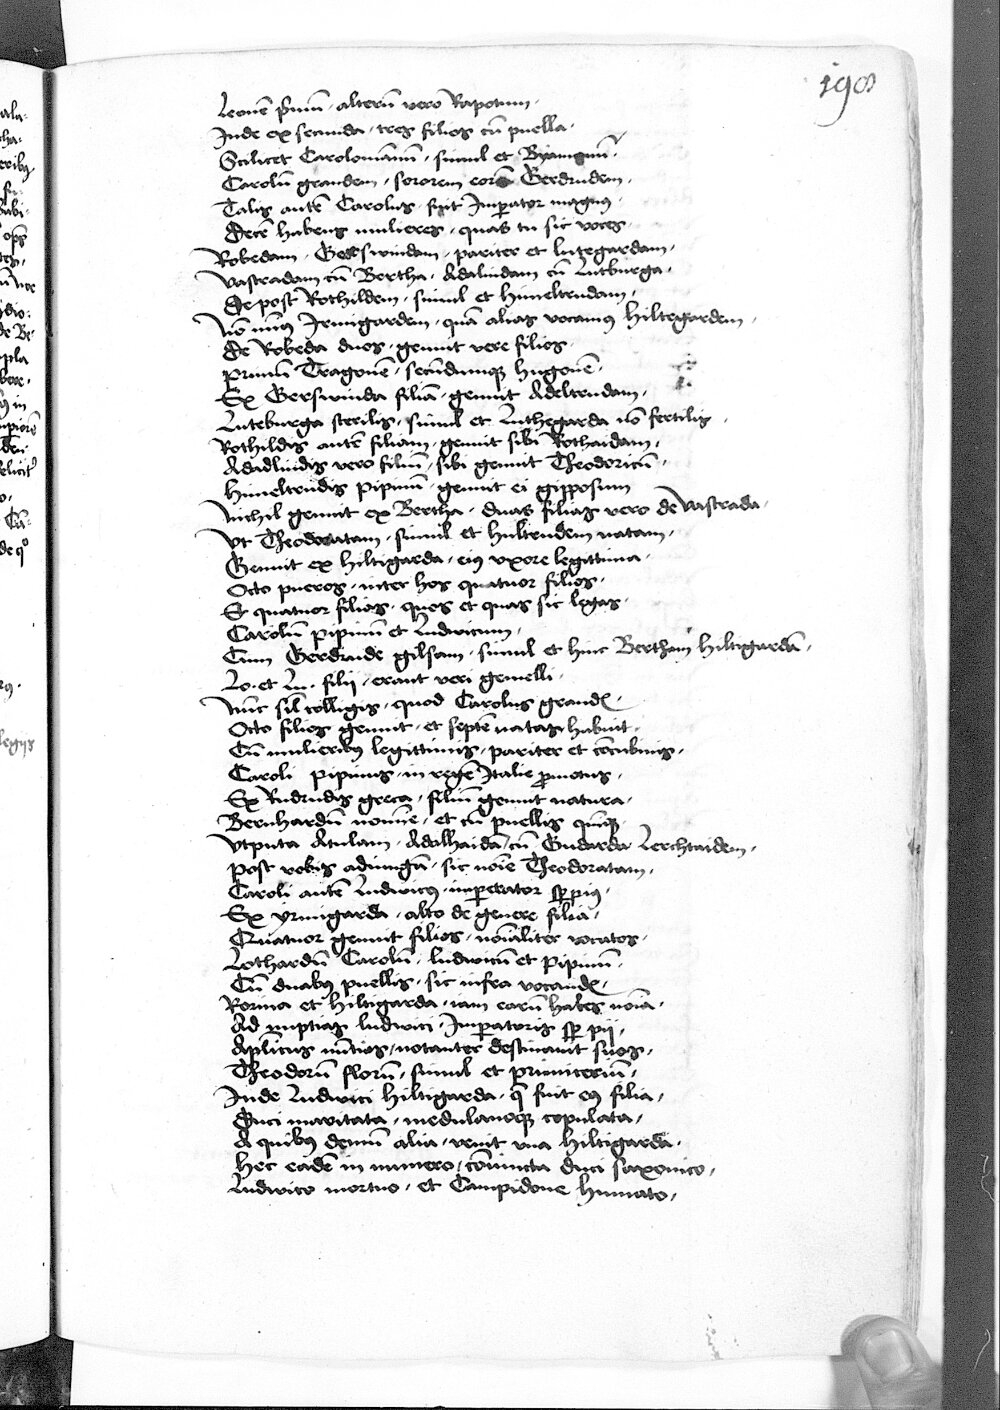 198
Leonē p̄mū · alterū vero Rapotum ·
Inde ex secunda · tres filios cū puella ·
Scilicet Carolomānū · simul et
Carolū grandem · sororem eorū Gerdrudem ·
Talis autē Carolus · fuit Imperator magnus ·
Decē habens mulieres · quas tu sic voces ·
Robedam · Gerswindam · pariter et lutegardam ·
Vastradam cū Bertha · Adalindam cū Lutburga ·
De post Rothildem · simul et himeltrudam ·
Nō minus Irmigardem · quā alias vocamus hiltegardem ·
De Robeda duos · genuit vere filios ·
Primū Dragonē · secūdumque hugonē ·
Ex Gerswinda filiā · genuit Adeltrudam ·
Luteburga sterilis · simul et Luthegarda nō fertilis ·
Rothildis autē filiam · genuit sibi Rothaidam ·
Adadlindis vero filiū · sibi genuit Theodoricū ·
himeltrudis pipinū · genuit ei gipposum
Nichil genuit ex Bertha · duas filias vero de Vastrada ·
Vt Theodoratam · simul et hiltrudem natam ·
Genuit ex hiltigarda · eius vxore legittima ·
Octo pueros · inter hos quatuor filios ·
Et quatuor filias · quos et quas sic legas ·
Carolū pipinū et Ludwicum ·
Cum Gerdrude gilsam · simul et hinc Bertham hiltigardā ·
Lo · et Lu · filii · erant veri gemelli ·
Nūc sil colligis · quod Carolus grand
Octo filios genuit · et septē natas habuit ·
Cū mulieribus legittimis · pariter et cōcubinis ·
Caroli pipinus · in regē Italie promotus ·
Ex Rudrudis greca · filiū genuit natura ·
Bernhardū nomine · et cū puellis quinque
Vtputa Atulam · Adalhaidā cū Gudarda Lerchtaidem ·
Post vobis adiungā · sic noīe Theodoratam ·
Caroli autē Ludwicus · imperator semper pius ·
Ex yrmigarda · alto de genere filia ·
Quatuor genuit filios · noīaliter vocatos ·
Lothardū Carolū · ludwicū et pipinū ·
Cū duabus puellis · sic infra vocand
Rorina et hiltigarda · iam earū habes noīa ·
Ad nuptias ludwici · Imperatoris semper pii ·
Aplicus nūtios · notanter destinavit suos ·
Theodorū florū · simul et primiceriū ·
Inde Ludwici hiltigarda · que fuit eius filia ·
Duci maritata · medulanoque copulata ·
A quibus demū alia · venit vna hiltigarda ·
hec eadē in numero · cōiuncta duci saxonico ·
Ludwico mortuo · et Campidone humato ·